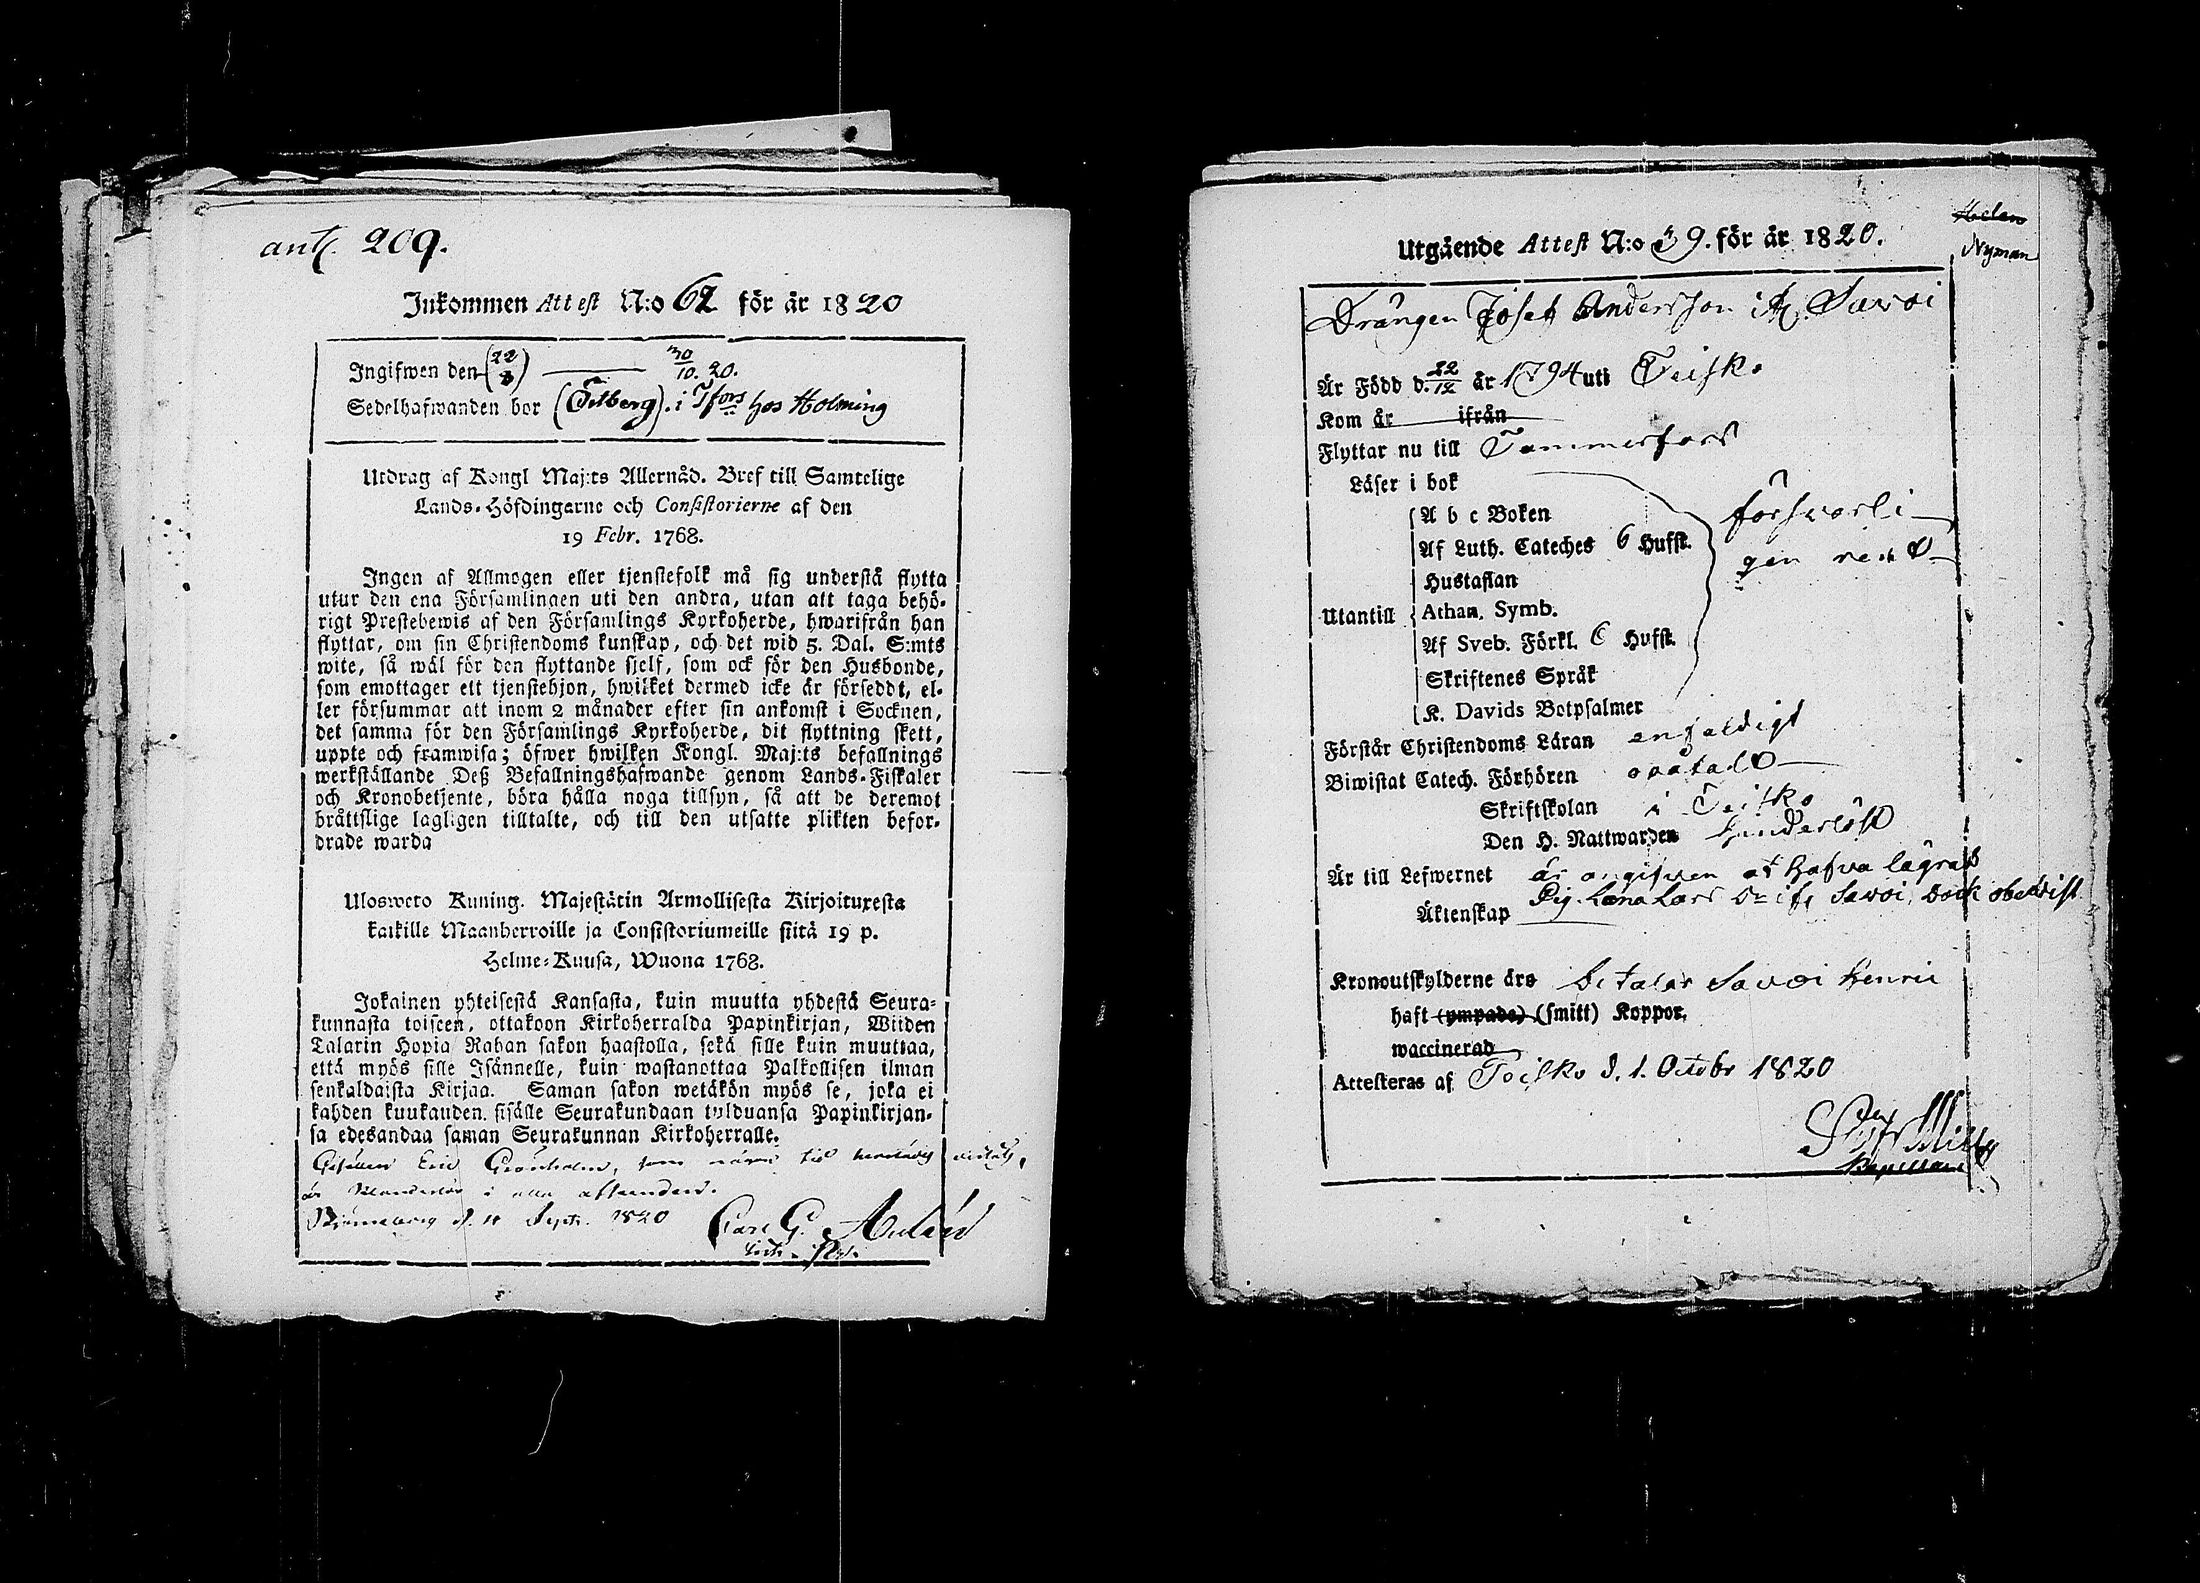 ant. 209.
Inkommen Attest N:o 62 för år 1820
Ingifwen den (22/8) 30/10. 20.
Sedelhafwanden bor (Tilberg). i Tfors hos Holming
Utdrag af Kongl Maj:ts Allernåd. Bref till Samtelige
Lands-Höfdingarne och Consistorierne af den
19 Febr. 1768.
Ingen af Allmogen eller tjenstefolk må sig understå flytta
utur den ena Församlingen uti den andra, utan att taga behö-
rigt Prestebewis af den Församlings Kyrkoherde, hwarifrån han
flyttar, om sin Christendoms kunskap, och det wid 5. Dal. S:mts
wite, så wäl för den flyttande sjelf, som ock för den Husbonde,
som emottager ett tjenstehjon, hwilket dermed icke är förseddt, el-
ler försummar att inom 2 månader efter sin ankomst i Socknen,
det samma för den Församlings Kyrkoherde, dit flyttning skett,
uppte och framwisa; öfwer hwilken Kongl. Maj:ts befallnings
werkställande Deß Befallningshafwande genom Lands-Fiskaler
och Kronobetjente, böra hålla noga tillsyn, så att de deremot
bråttslige lagligen tilltalte, och till den utsatte plikten befor-
drade warda
Uloswcto Kuning. Majestätin Armollisesta Kirjoituxesta
kaikille Maanherroille ja Consistoriumeille siitä 19 p.
Helme-Kuusa, Wuona 1768.
Jokainen yhteisestä Kansasta, kuin muutta yhdestä Seura-
kunnasta toiseen, ottakoon Kirkoherralda Papinkirjan, Wiiden
Talarin Hopia Rahan sakon haastolla, sekä sille kuin muuttaa,
että myös sille Isännelle, kuin wastanottaa Palkollisen ilman
senkaldaista Kirjaa. Saman sakon wetäkön myös se, joka ei
kahden kuukauden. sisälle Seurakundaan tulduansa Papinkirjan-
sa edesandaa saman Seurakunnan Kirkoherralle.
Gesällen Eric Grönholm, som
är i alla afseenden.
Björneborg d. 11 Septr. 1820 Carl G.
Helen
Nyman
Utgående Attest N:o 39. för år 1820.
Drängen Josef Andersson ifr. Savoi
Är Född d. 22/12 år 1794 uti Teisko
Kom år ifrån
Flyttar nu till Tammerfors
Läser i bok
A b c Boken
försvarli-
Af Luth. Cateches 6 Hufst.
gen rent
Hustaflan
Utantill Athan, Symb.
Af Sveb. Förkl. 6 Hufst.
Skriftenes Språk
K. Davids Botpsalmer
Förstår Christendoms Läran enfaldigt
Biwistat Catech. Förhören
Skriftskolan i Teisko
Den H. Nattwarden hinderlöst
Är till Lefwernet är angifven at hafva lägrat
Pig. Lena Lars Dr ifr Savoi, dock obevist
Äktenskap
Kronoutskylderne äro betalar Savoi Henric
haft (ympade) (smitt) Koppor.
waccinerad
Attesteras af Teisko d. 1. Octobr 1820
Kapellan